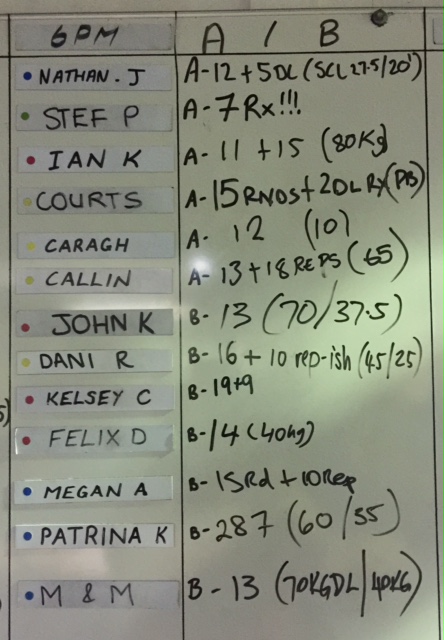 6PM A / B
• NATHAN. J A-12+5DL (SCL 27.5/20')
• STEF P A-7 Rx!!!
• IAN K A- 11 +15 (80Kg)
• COURTS A-15RNDS+20L Rx(PB)
• CARAGH A- 12 (10)
• CALLIN A-13+18 REPS (65)
• JOHN K B-13 (70/37.5)
• DANI R B-16 + 10 rep-ish (45/25)
• KELSEY C B-19+9
• FELIX D B-14 (40kg)
• MEGAN A B-15Rd +10Rep
• PATRINA K B-287 (60/35)
• M & M B-13 (70KGDL/40KG)